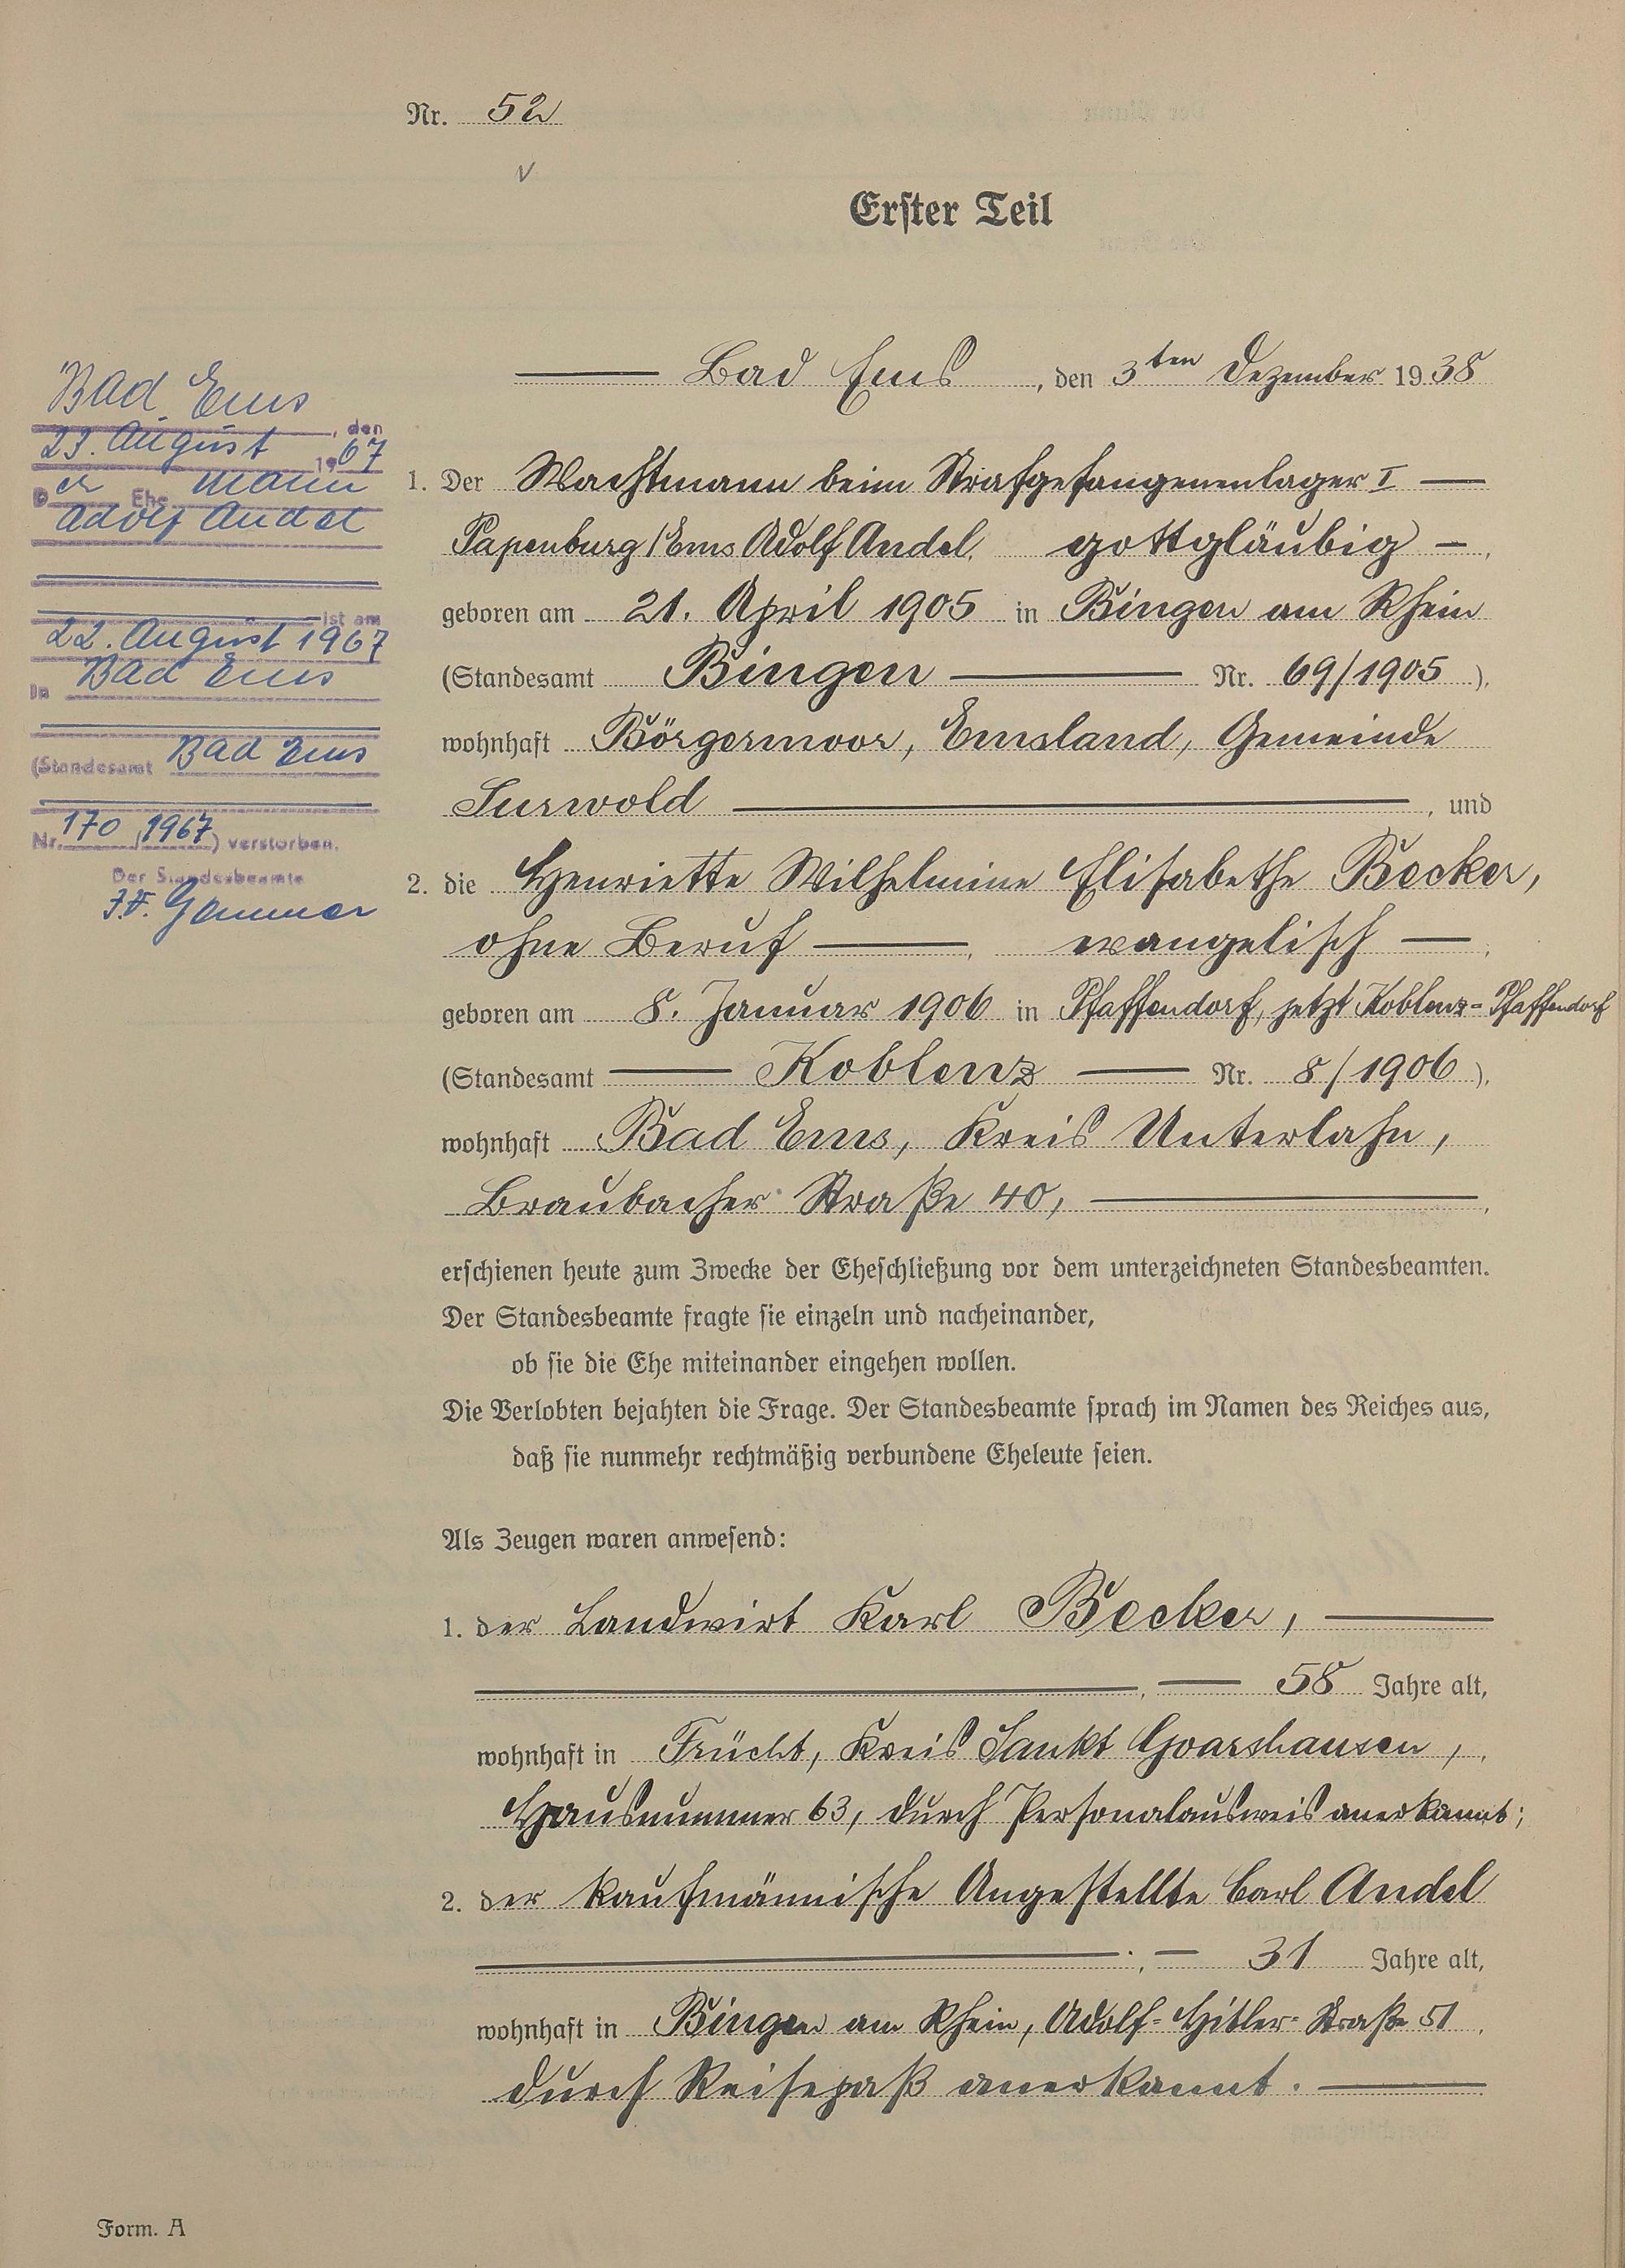 Nr. 52
Erster Teil
Bad Ems, den 3ten Dezember 1938
Bad Ems, den
23. August 1967
Der Ehemann
Adolf Andel
ist am
22. August 1967
in Bad Ems
(Standesamt Bad Ems
Nr. 170/1967) verstorben.
Der Standesbeamte
I.V.
1. Der Wachtmann beim Strafgefangenenlager I
Papenburg/Ems Adolf Andel, gottgläubig,
geboren am 21. April 1905 in Bingen am Rhein
(Standesamt Bingen Nr. 69/1905),
wohnhaft Börgermoor, Emsland, Gemeinde
Surwold, und
2. die Henriette Wilhelmine Elisabethe Becker,
ohne Beruf, evangelisch,
geboren am 8. Januar 1906 in Pfaffendorf, jetzt Koblenz-Pfaffendorf
(Standesamt Koblenz Nr. 8/1906),
wohnhaft Bad Ems, Kreis Unterlahn,
Braubacher Straße 40,
erschienen heute zum Zwecke der Eheschließung vor dem unterzeichneten Standesbeamten.
Der Standesbeamte fragte sie einzeln und nacheinander,
ob sie die Ehe miteinander eingehen wollen.
Die Verlobten bejahten die Frage. Der Standesbeamte sprach im Namen des Reiches aus,
daß sie nunmehr rechtmäßig verbundene Eheleute seien.
Als Zeugen waren anwesend:
1. der Landwirt Karl Becker,
58 Jahre alt,
wohnhaft in Frücht, Kreis Sankt Goarshausen,
Hausnummer 63, durch Personalausweis anerkannt;
2. der kaufmännische Angestellte Carl Andel
31 Jahre alt,
wohnhaft in Bingen am Rhein, Adolf-Hitler-Straße 51,
durch Reisepaß anerkannt.
Form. A